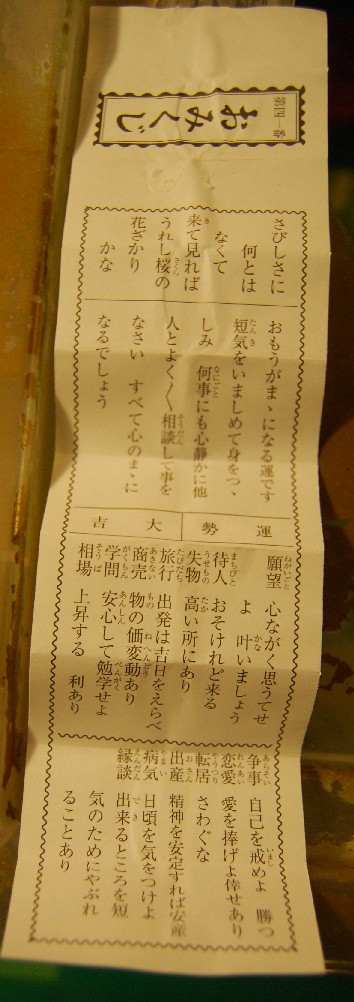 第四一番
おみくじ
さびしさに
何とは
なくて
来て見れば
うれし桜の
花ざかり
かな
おもうがまゝになる運です
短気をいましめて身をつゝ
しみ 何事にも心静かに他
人とよく〱相談して事を
なさい すべて心のまゝに
なるでしょう
運勢 大吉
願望 心ながく思うてせ
よ 叶いましょう
待人 おそけれど来る
失物 高い所にあり
旅行 出発は吉日をえらべ
商売 物の価変動あり
学問 安心して勉学せよ
相場 上昇する 利あり
争事 自己を戒めよ 勝つ
恋愛 愛を捧げよ倖せあり
転居 さわぐな
出産 精神を安定すれば安産
病気 日頃を気をつけよ
縁談 出来るところを短
気のためにやぶれ
ることあり